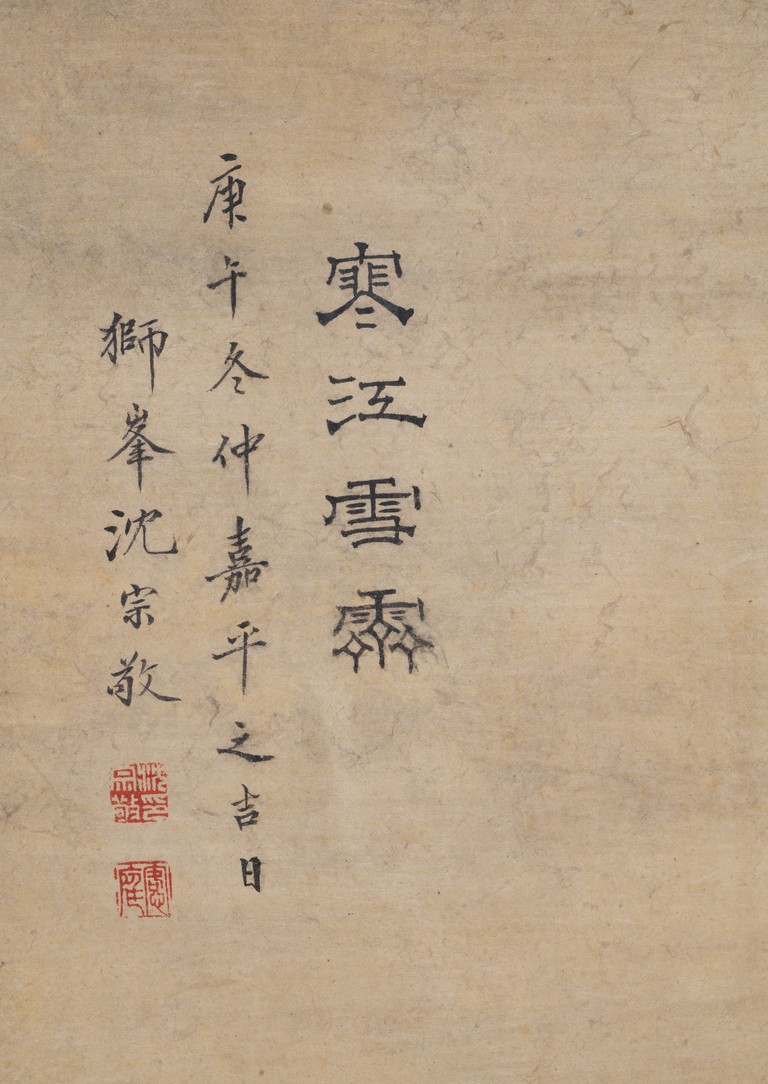 寒江雪霽
庚午冬仲嘉平之吉日
獅峯沈宗敬